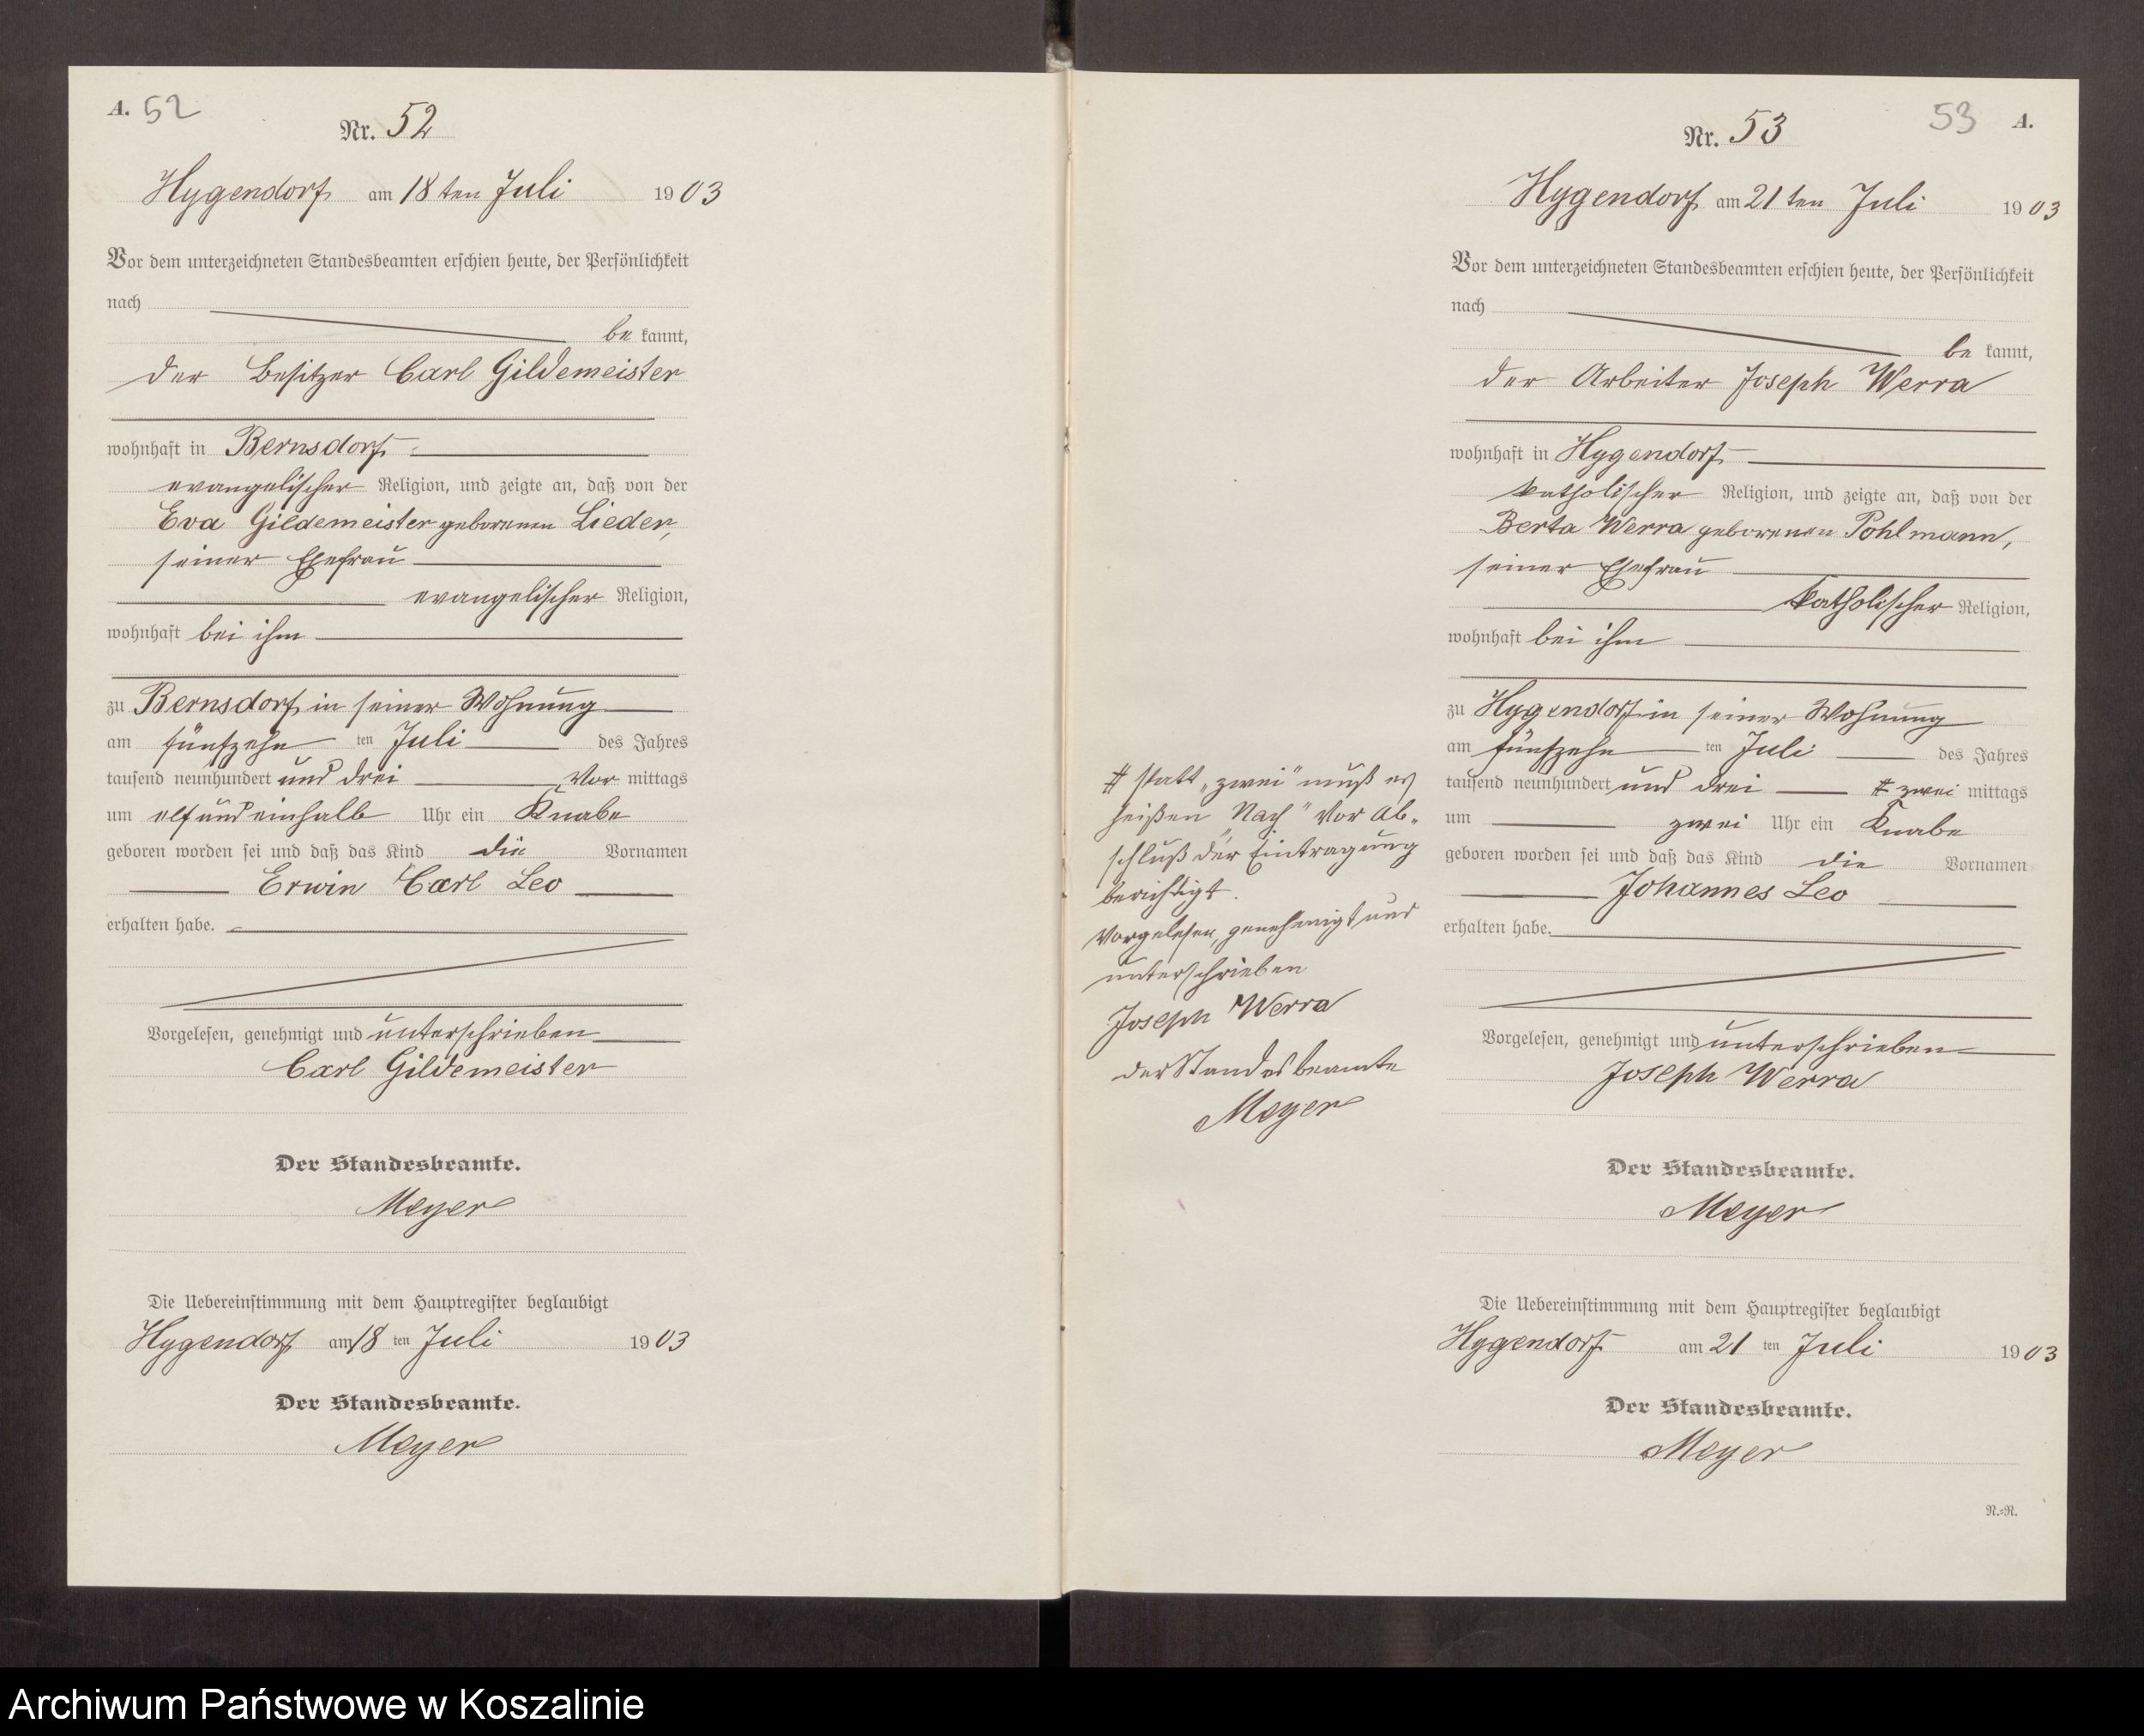 A. 52
Nr. 52
Hygendorf am 18ten Juli 1903
Vor dem unterzeichneten Standesbeamten erschien heute, der Persönlichkeit
nach
be kannt,
der Besitzer Carl Gildemeister
wohnhaft in Bernsdorf
evangelischer Religion, und zeigte an, daß von der
Eva Gildemeister geborenen Lieder,
seiner Ehefrau
evangelischer Religion,
wohnhaft bei ihm
zu Bernsdorf in seiner Wohnung
am fünfzehn ten Juli des Jahres
tausend neunhundert und drei Vor mittags
um elf und einhalb Uhr ein Knabe
geboren worden sei und daß das Kind die Vornamen
Erwin Carl Leo
erhalten habe.
Vorgelesen, genehmigt und unterschrieben
Carl Gildemeister
Der Standesbeamte.
Meyer
Die Uebereinstimmung mit dem Hauptregister beglaubigt
Hygendorf am 18 ten Juli 1903
Der Standesbeamte.
Meyer
53 A.
Nr. 53
Hygendorf am 21ten Juli 1903
Vor dem unterzeichneten Standesbeamten erschien heute, der Persönlichkeit
nach
be kannt,
der Arbeiter Joseph Werra
wohnhaft in Hygendorf
katholischer Religion, und zeigte an, daß von der
Berta Werra geborenen Pohlmann,
seiner Ehefrau
katholischer Religion,
wohnhaft bei ihm
zu Hygendorf in seiner Wohnung
am fünfzehn ten Juli des Jahres
tausend neunhundert und drei # zwei mittags
um zwei Uhr ein Knabe
geboren worden sei und daß das Kind die Vornamen
Johannes Leo
erhalten habe.
Vorgelesen, genehmigt und unterschrieben
Joseph Werra
Der Standesbeamte.
Meyer
Die Uebereinstimmung mit dem Hauptregister beglaubigt
Hygendorf am 21 ten Juli 1903
Der Standesbeamte.
Meyer
N.-N.
# statt „zwei" muß es
heißen „Nach" Vor Ab-
schluß der Eintragung
berichtigt.
Vorgelesen, genehmigt und
unterschrieben
Joseph Werra
der Standesbeamte
Meyer
Archiwum Państwowe w Koszalinie